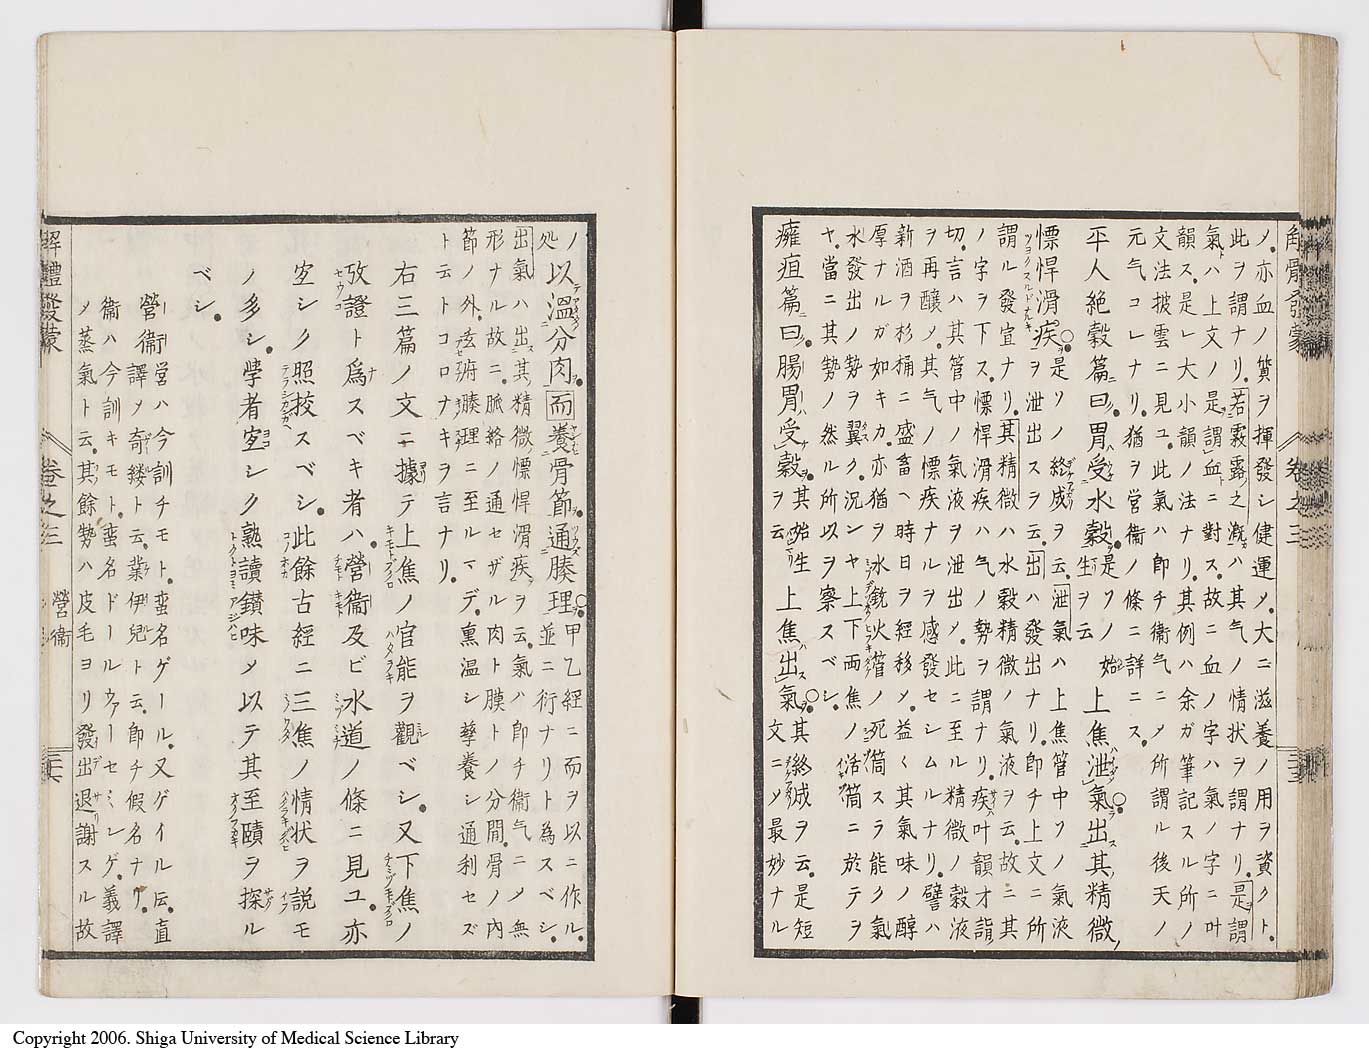 解體發蒙
卷之三
ノ亦血ノ質ヲ揮發シ健運ノ大ニ滋養ノ用ヲ資クト
此ヲ謂ナリ若霧露之漑ハ其气ノ情状ヲ謂ナリ是謂
氣ハ上文ノ是謂血ニ對ス故ニ血ノ字ハ氣ノ字ニ叶
韻ス是レ大小韻ノ法ナリ其例ハ余ガ筆記スル所ノ
文法披雲ニ見ユ此氣ハ即チ衞气ニメ所謂ル後天ノ
元气コレナリ猶ヲ営衞ノ條ニ詳ニス
平人絶穀篇曰胃受水穀是ソノ始生ヲ云上焦泄氣出其精微
慓悍滑疾是ソノ終成ヲ云泄氣ハ上焦管中ソノ氣液
ヲ泄出スヲ云出ハ發出ナリ即チ上文ニ所
謂ル發宜ナリ其精微ハ水穀精微ノ氣液ヲ云故ニ其
ノ字ヲ下ス慓悍滑疾ハ气ノ勢ヲ謂ナリ疾叶韻才詣
切言ハ其管中ノ氣液ヲ泄出メ此ニ至ル精微ノ穀液
ヲ再釀ノ其气ノ慓疾ナルヲ感發セシムルナリ譬ハ
新酒ヲ杉桶ニ盛畜ヘ時日ヲ經移メ益〻其氣味ノ醇
厚ナルガ如キカ亦猶ヲ水銃火管ノ死筒スラ能ク氣
水發出ノ勢ヲ翼ク况ンヤ上下両焦ノ活筒ニ於テヲ
ヤ當ニ其勢ノ然ル所以ヲ察スベシ
癰疽篇曰腸胃受穀其始生ヲ云上焦出氣其終成ヲ云是短文ニメ最妙ナル
ノ処以溫分肉而養骨節通腠理甲乙經ニ而ヲ以ニ作ル並ニ衍ナリト為スベシ
出氣ハ出其精微慓悍滑疾ヲ云氣ハ即チ衞气ニメ無
形ナル故ニ脈絡ノ通セザル肉ト膜トノ分間骨ノ内
節ノ外腠理ニ至ルマデ熏温シ孳養シ通利セズ
ト云トコロナキヲ言ナリ
右三篇ノ文ニ據テ上焦ノ官能ヲ觀ベシ又下焦ノ
攷證ト為スベキ者ハ營衞及ビ水道ノ條ニ見ユ亦
空シク照挍スベシ此餘古經ニ三焦ノ情状ヲ説モ
ノ多シ学者空シク熟讀鑚味メ以テ其至賾ヲ探ル
ベシ
營衞営ハ今訓チモト蛮名ゲール又ゲイル伝直
譯メ奇縷ト云業伊兒ト云即チ假名ナリ
衞ハ今訓キモト蛮名ドールウァーセミンゲ義譯
メ蒸氣ト云其餘勢ハ皮毛ヨリ發出退謝スル故
解體發蒙
卷之三
營衞